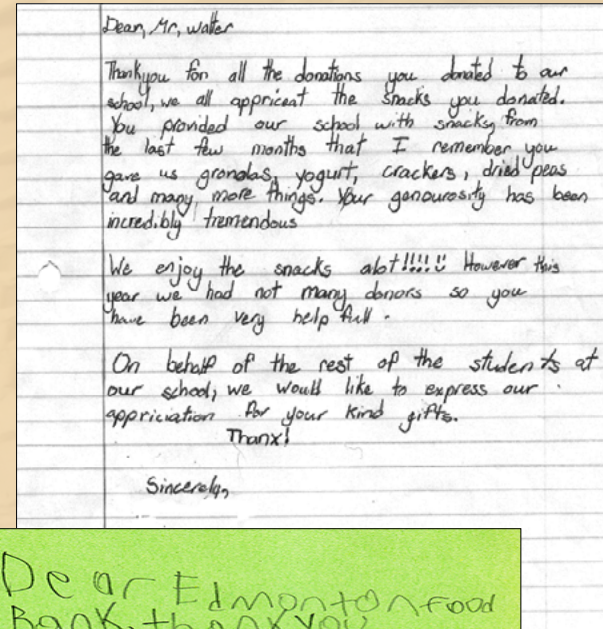 Dear, Mr, Walter
Thankyou for all the donations you donated to our
school, we all appriceat the snacks you donated.
You provided our school with snacks, from
the last few months that I remember you
gave us granolas, yogurt, crackers, dried peas
and many, more things. Your genourosity has been
incredibly tremendous
We enjoy the snacks alot!!!!! However this
year we had not many donors so you
have been very help full.
On behalf of the rest of the students at
our school, we would like to express our
appriciation for your kind gifts.
Thanx!
Sincerely,
Dear Edmonton Food
Bank, thank you